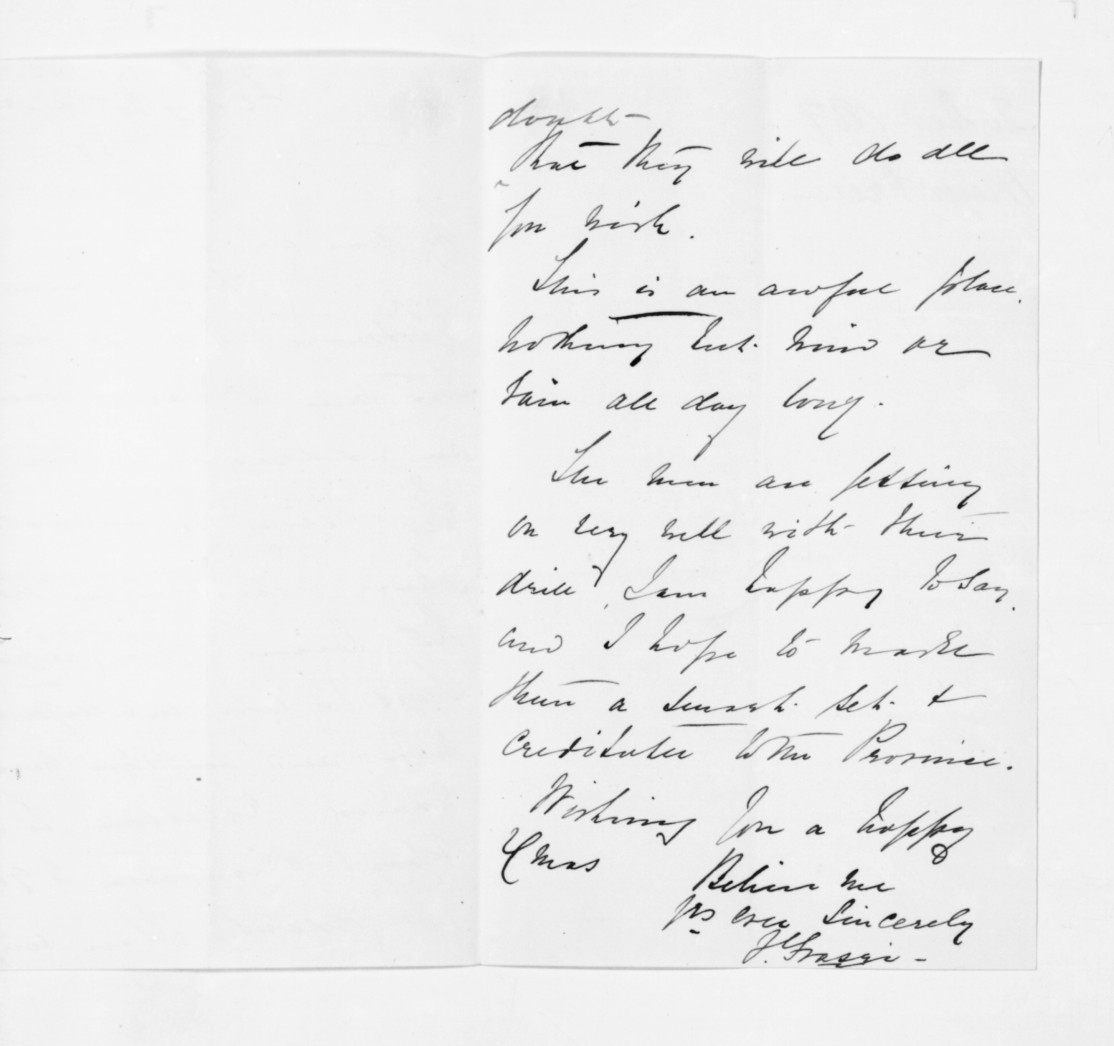 doubt
that they will do all
you wish.
This is an awful place.
nothing but wind or
rain all day long.
The men are getting
on very well with their
drill, I am happy to say,
and I hope to make
them a smart set &
creditable to the Province.
Wishing you a happy
Xmas
Believe me
yrs ever Sincerely
J. Grasgi